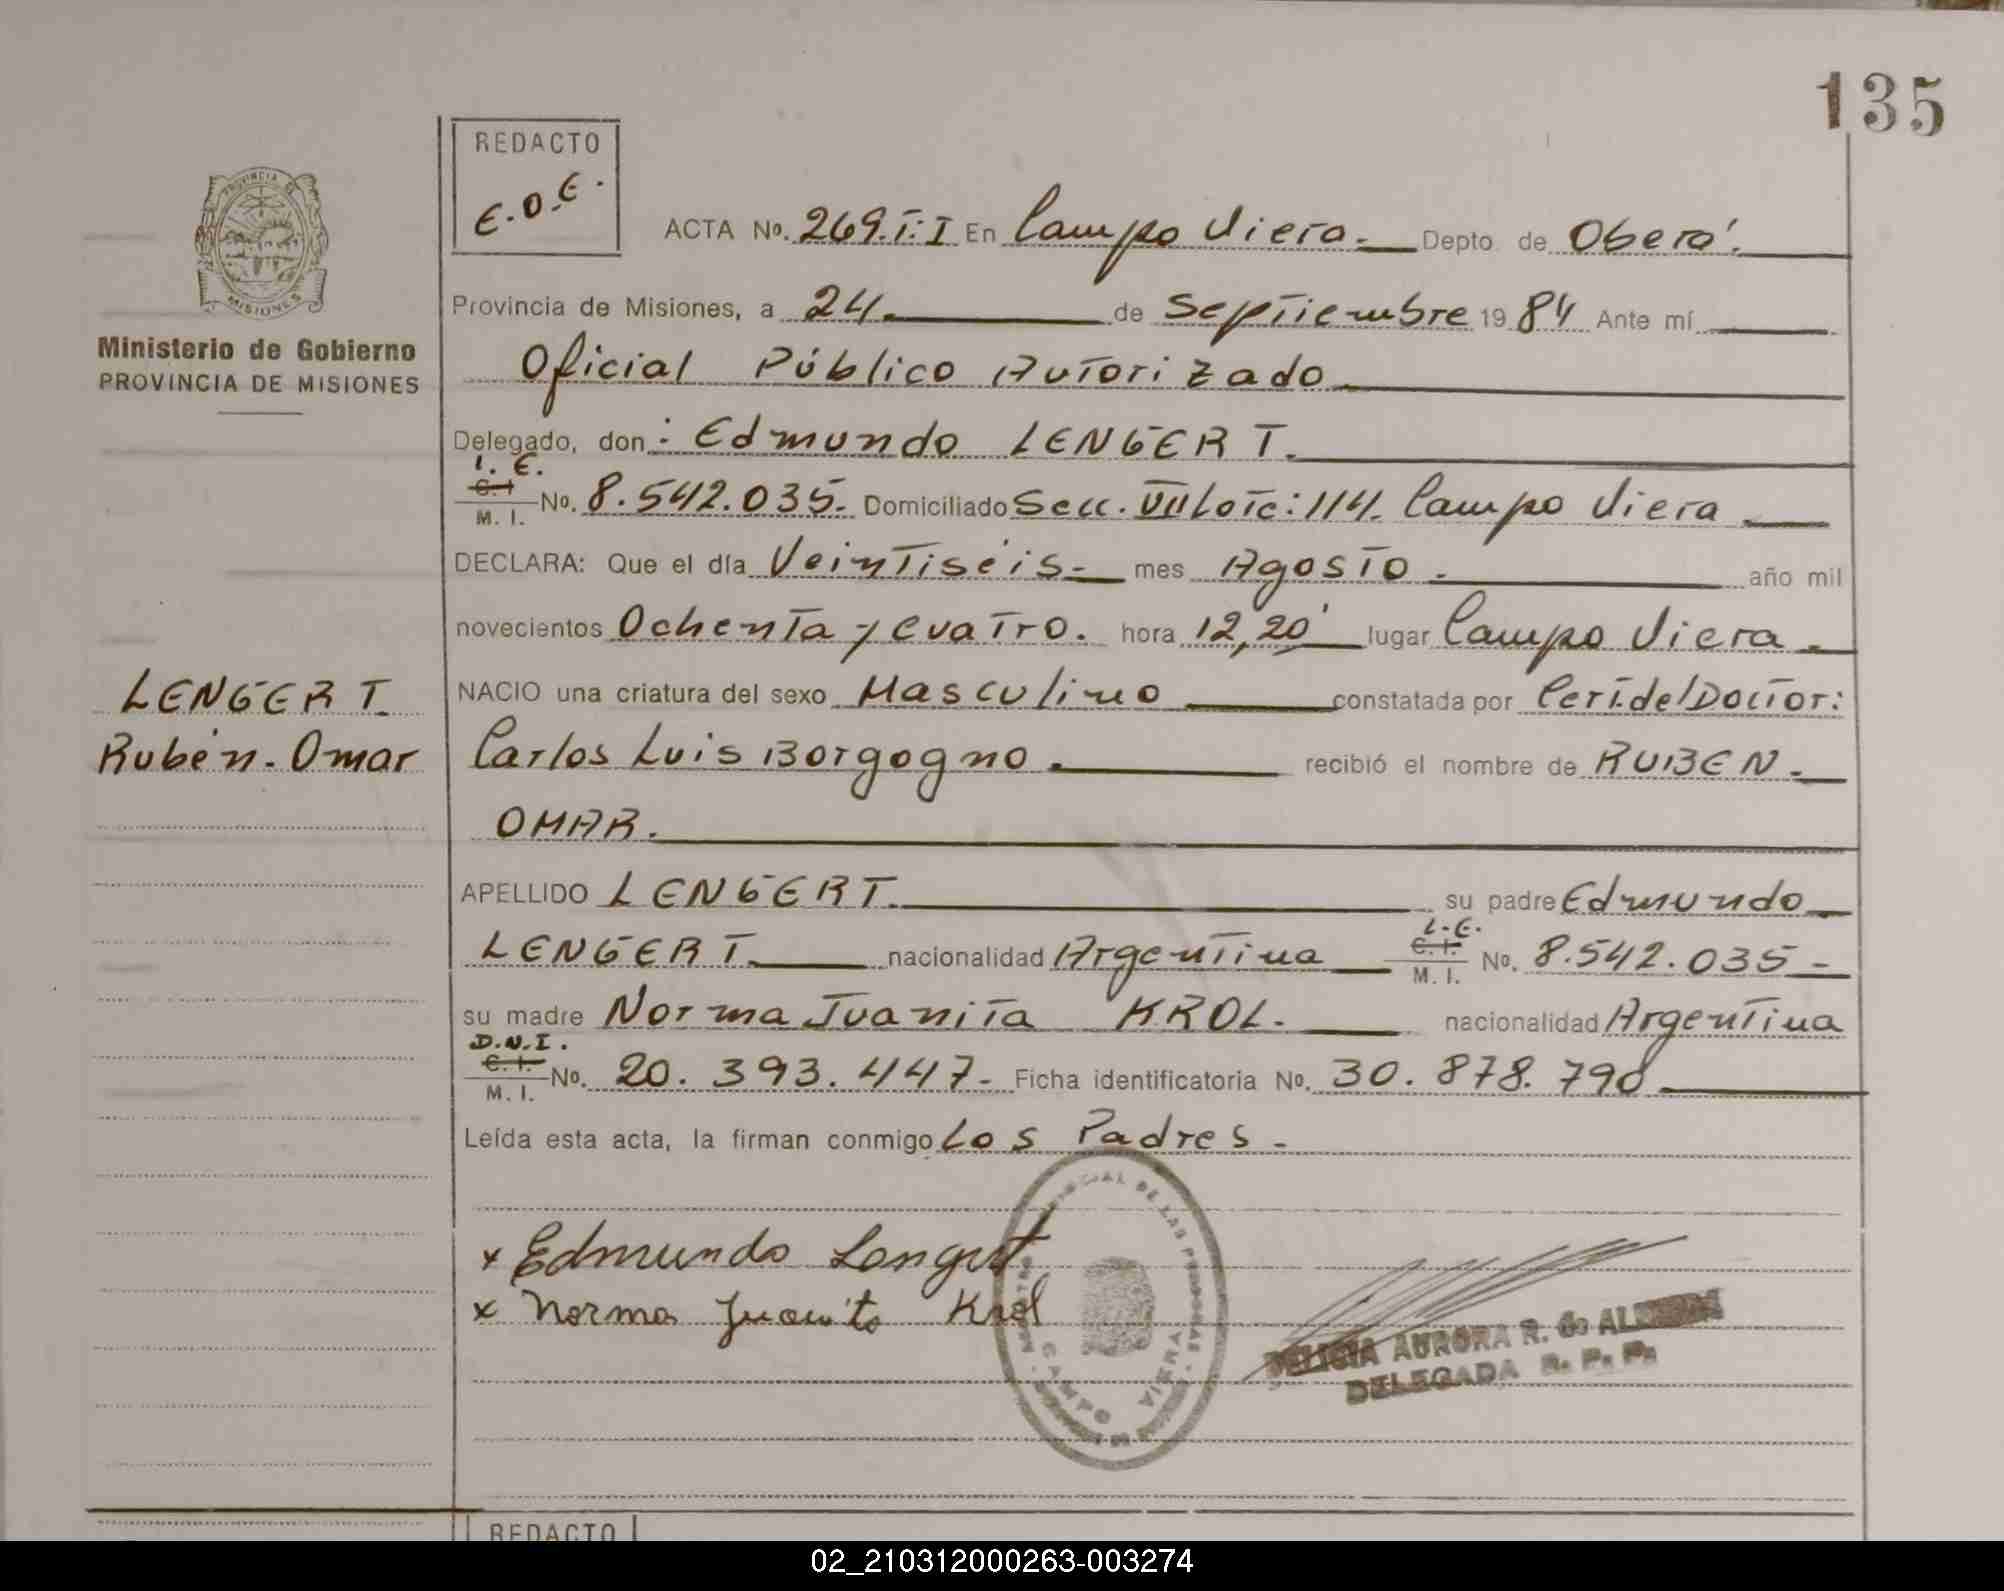 135
REDACTO
E.O.E.
PROVINCIA DE
MISIONES
Ministerio de Gobierno
PROVINCIA DE MISIONES
ACTA No. 269.T:I En Campo Viera.- Depto. de Oberá.
Provincia de Misiones, a 24. de Septiembre 19 84 Ante mí
Oficial Público Autorizado
Delegado, don: Edmundo LENGERT.
L. E.
C. I.
M. I. No. 8.542.035.- Domiciliado Secc. VII Lote: 114. Campo Viera
DECLARA: Que el día Veintiséis.- mes Agosto.- año mil
novecientos Ochenta y cuatro. hora 12,20' lugar Campo Viera.
LENGERT
Rubén. Omar
NACIO una criatura del sexo Masculino constatada por Cert. del Doctor:
Carlos Luis Borgogno. recibió el nombre de RUBEN.
OMAR.
APELLIDO LENGERT. su padre Edmundo
LENGERT nacionalidad Argentina L.E. C. I. M. I. No. 8.542.035-
su madre Norma Juanita KROL. nacionalidad Argentina
D.N.I.
C. I.
M. I. No. 20.393.447- Ficha identificatoria No. 30.878.790
Leída esta acta, la firman conmigo Los Padres-
x Edmundo Lengert
x Norma Juanita Krol
DE LAS PERSONAS
CAMPO VIERA
DELICIA AURORA R. de
DELEGADA R. P. P.
REDACTO
02_210312000263-003274